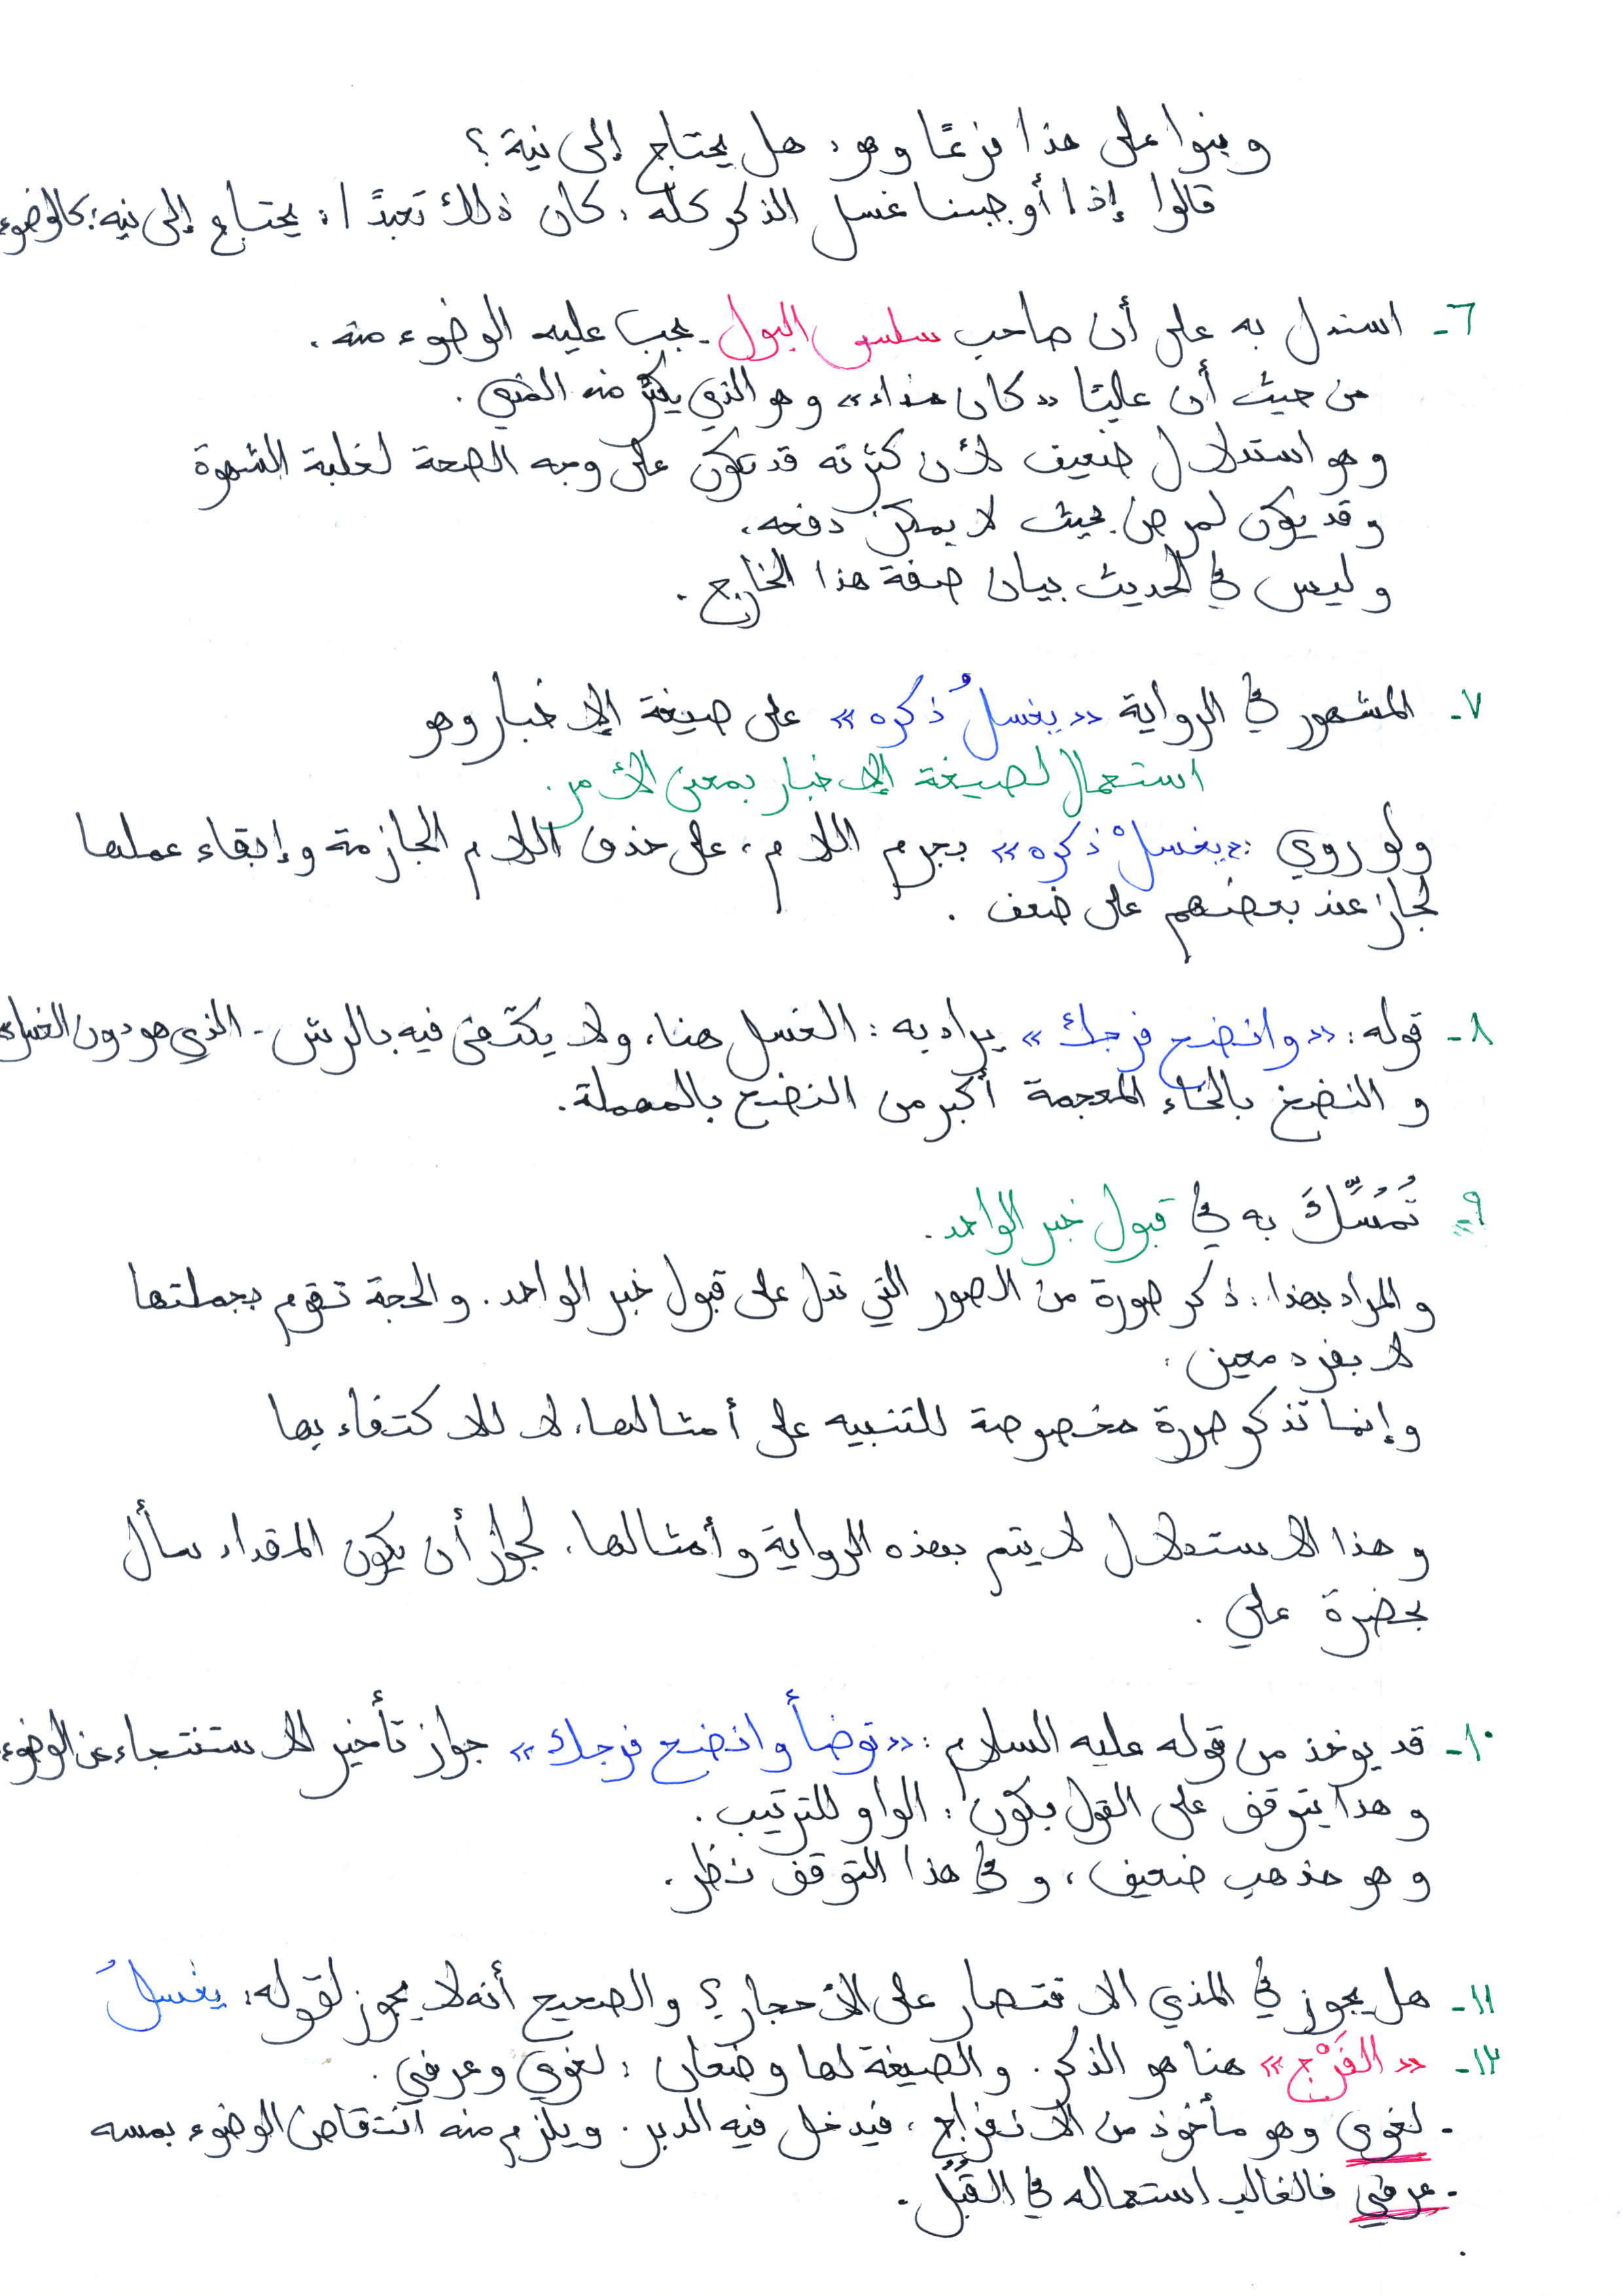 وبنوا على هذا فرعًا وهو: هل يحتاج إلى نية؟
قالوا إذا أوجبنا غسل الذكر كله، كان ذلك تعبدًا: يحتاج إلى نية: كالوضوء
٦- استدل به على أن صاحب سلس البول يجب عليه الوضوء منه.
من حيث أن عليًّا «كان مذاء» وهو الذي يكثر منه المذي.
وهو استدلال ضعيف لأن كثرته قد تكون على وجه الصحة لغلبة الشهوة
وقد يكون لمرض بحيث لا يمكن دفعه.
وليس في الحديث بيان صفة هذا الخارج.
٧- المشهور في الرواية «يغسلُ ذكره» على صيغة الإخبار وهو
استعمال لصيغة الإخبار بمعنى الأمر.
ولو روي: «يغسلْ ذكره» بجزم اللام، على حذف اللام الجازمة وإبقاء عملها
لجاز عند بعضهم على ضعف.
٨- قوله: «وانضح فرجك» يراد به: الغسل هنا، ولا يكتفى فيه بالرش - الذي هو دون الغسل
والنضخ بالخاء المعجمة أكبر من النضح بالمهملة.
٩- تُمُسِّكَ به في قبول خبر الواحد.
والمراد بهذا: ذكر صورة من الصور التي تدل على قبول خبر الواحد. والحجة تقوم بجملتها
لا بفرد معين.
وإنما تذكر صورة مخصوصة للتنبيه على أمثالها، لا للاكتفاء بها
وهذا الاستدلال لا يتم بهذه الرواية وأمثالها، لجواز أن يكون المقداد سأل
بحضرة علي.
١٠- قد يوخذ من قوله عليه السلام: «توضأ وانضح فرجك» جواز تأخير الاستنتجاء عن الوضوء
وهذا يتوقف على القول بكون: الواو للترتيب.
وهو مذهب ضعيف، وفي هذا التوقف نظر.
١١- هل يجوز في المذي الاقتصار على الأحجار؟ والصحيح أنه لا يجوز لقوله: يغسلُ
١٢- «الفَرْج» هنا هو الذكر. والصيغة لها وضعان: لغوي وعرفي.
- لغوي وهو مأخوذ من الانفراج، فيدخل فيه الدبر. ويلزم منه انتقاض الوضوء بمسه
- عرفي فالغالب استعماله في القُبُل.